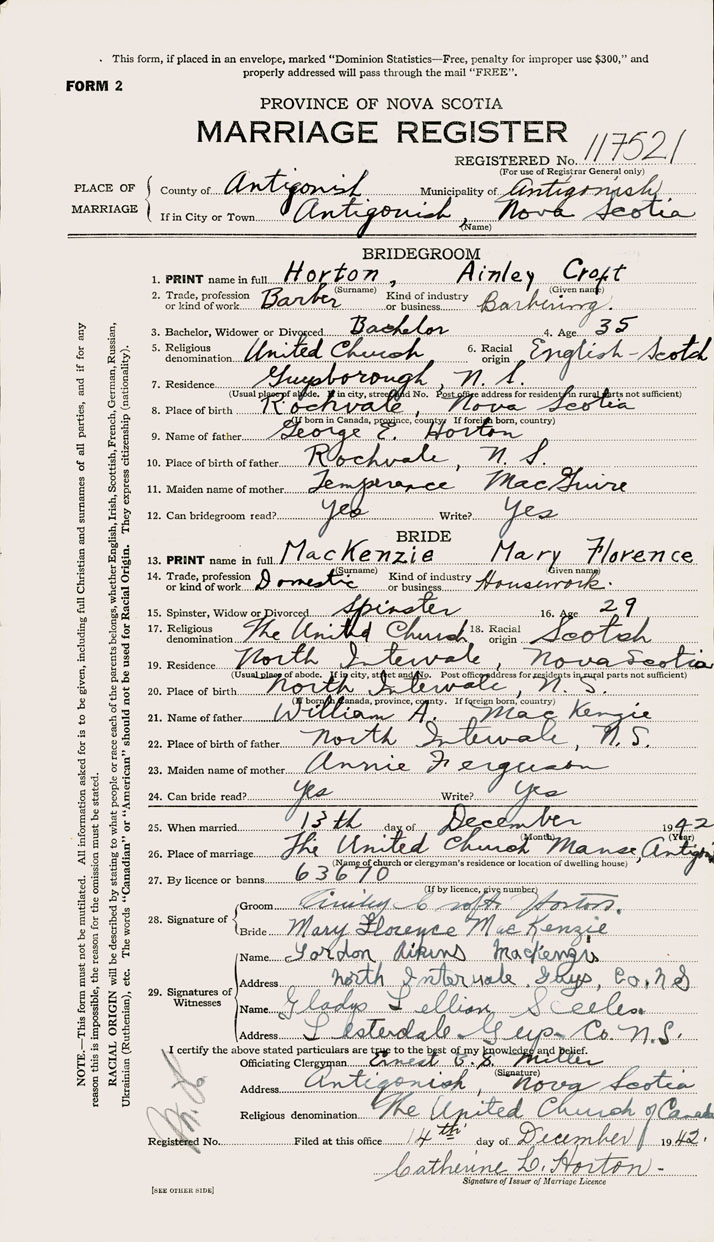 This form, if placed in an envelope, marked "Dominion Statistics—Free, penalty for improper use $300," and
properly addressed will pass through the mail "FREE".
FORM 2
PROVINCE OF NOVA SCOTIA
MARRIAGE REGISTER
REGISTERED No. 117521
(For use of Registrar General only)
PLACE OF MARRIAGE
County of Antigonish Municipality of Antigonish
If in City or Town Antigonish, Nova Scotia
(Name)
BRIDEGROOM
1. PRINT name in full Horton, Ainley Croft
(Surname) (Given name)
2. Trade, profession or kind of work Barber Kind of industry or business Barbering.
3. Bachelor, Widower or Divorced Bachelor 4. Age 35
5. Religious denomination United Church 6. Racial origin English-Scotch
7. Residence Guysborough, N. S.
(Usual place of abode. If in city, street and No. Post office address for residents in rural parts not sufficient)
8. Place of birth Rochvale, Nova Scotia
(If born in Canada, province, county. If foreign born, country)
9. Name of father George E. Horton
10. Place of birth of father Rochvale, N. S.
11. Maiden name of mother Temperence MacGuire
12. Can bridegroom read? Yes Write? Yes
BRIDE
13. PRINT name in full MacKenzie Mary Florence
(Surname) (Given name)
14. Trade, profession or kind of work Domestic Kind of industry or business Housework.
15. Spinster, Widow or Divorced Spinster 16. Age 29
17. Religious denomination The United Church 18. Racial origin Scotch
19. Residence North Intervale, Nova Scotia
(Usual place of abode. If in city, street and No. Post office address for residents in rural parts not sufficient)
20. Place of birth North Intervale, N. S.
(If born in Canada, province, county. If foreign born, country)
21. Name of father William A. MacKenzie
22. Place of birth of father North Intervale, N.S.
23. Maiden name of mother Annie Ferguson
24. Can bride read? Yes Write? Yes
25. When married 13th day of December 1942
(Month) (Year)
26. Place of marriage The United Church Manse, Antigon
(Name of church or clergyman's residence or location of dwelling house)
27. By licence or banns 63670
(If by licence, give number)
28. Signature of
Groom Ainley Croft Horton.
Bride Mary Florence MacKenzie
29. Signatures of Witnesses
Name Gordon Aikins MacKenzie
Address North Intervale Guys, Co, N S
Name Gladys Lellian
Address Guys Co. N.S.
I certify the above stated particulars are true to the best of my knowledge and belief.
Officiating Clergyman Ernest E. S. Miller
(Signature)
Address Antigonish, Nova Scotia
Religious denomination The United Church of Canada
Registered No. Filed at this office 14th day of December 1942.
Catherine L. Horton
Signature of Issuer of Marriage Licence
[SEE OTHER SIDE]
NOTE.—This form must not be mutilated. All information asked for is to be given, including full Christian and surnames of all parties, and if for any
reason this is impossible, the reason for the omission must be stated.
RACIAL ORIGIN will be described by stating to what people or race each of the parents belongs, whether English, Irish, Scottish, French, German, Russian,
Ukrainian (Ruthenian), etc. The words "Canadian" or "American" should not be used for Racial Origin. They express citizenship (nationality).